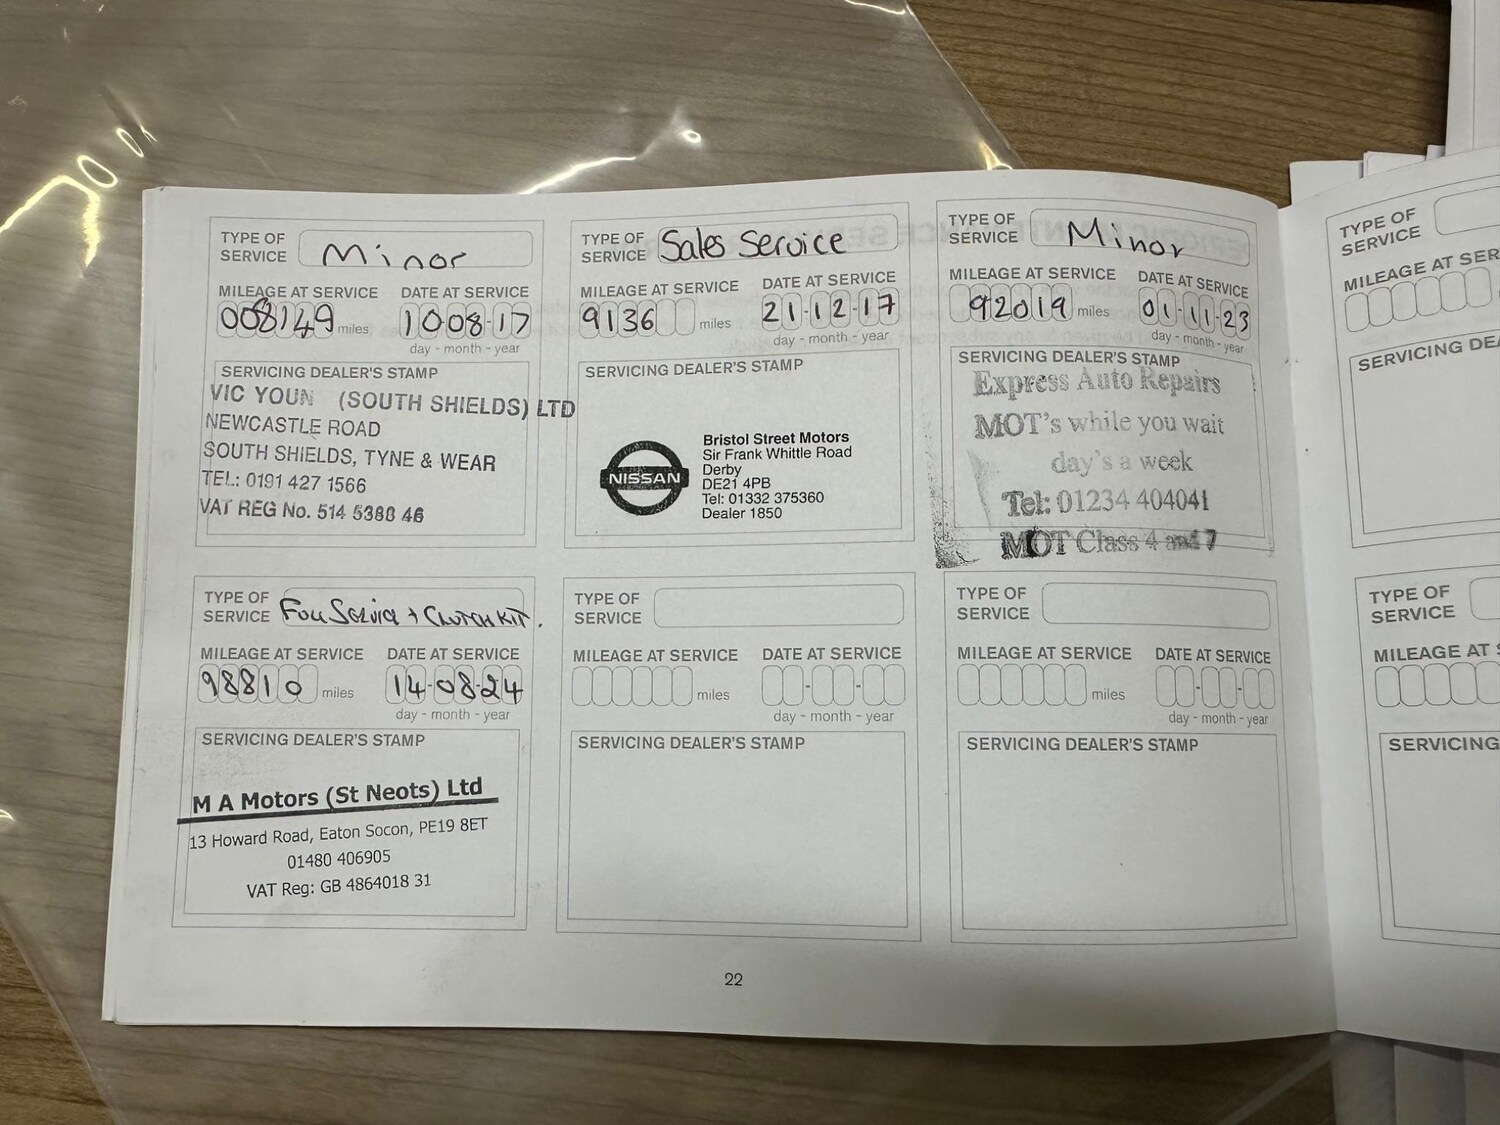 TYPE OF
SERVICE Minor
MILEAGE AT SERVICE DATE AT SERVICE
008149 miles 10-08-17
day - month - year
SERVICING DEALER'S STAMP
VIC YOUN (SOUTH SHIELDS) LTD
NEWCASTLE ROAD
SOUTH SHIELDS, TYNE & WEAR
TEL: 0191 427 1566
VAT REG No. 514 5388 46
TYPE OF
SERVICE Sales Service
MILEAGE AT SERVICE DATE AT SERVICE
9136 miles 21-12-17
day - month - year
SERVICING DEALER'S STAMP
NISSAN
Bristol Street Motors
Sir Frank Whittle Road
Derby
DE21 4PB
Tel: 01332 375360
Dealer 1850
TYPE OF
SERVICE Minor
MILEAGE AT SERVICE DATE AT SERVICE
92019 miles 01-11-23
day - month - year
SERVICING DEALER'S STAMP
Express Auto Repairs
MOT's while you wait
day's a week
Tel: 01234 404041
MOT Class 4 and 7
TYPE OF
SERVICE
MILEAGE AT SER
SERVICING DEA
TYPE OF
SERVICE Full Service + Clutch KIT.
MILEAGE AT SERVICE DATE AT SERVICE
98810 miles 14-08-24
day - month - year
SERVICING DEALER'S STAMP
M A Motors (St Neots) Ltd
13 Howard Road, Eaton Socon, PE19 8ET
01480 406905
VAT Reg: GB 4864018 31
TYPE OF
SERVICE
MILEAGE AT SERVICE DATE AT SERVICE
miles
day - month - year
SERVICING DEALER'S STAMP
TYPE OF
SERVICE
MILEAGE AT SERVICE DATE AT SERVICE
miles
day - month - year
SERVICING DEALER'S STAMP
TYPE OF
SERVICE
MILEAGE AT S
SERVICING
22